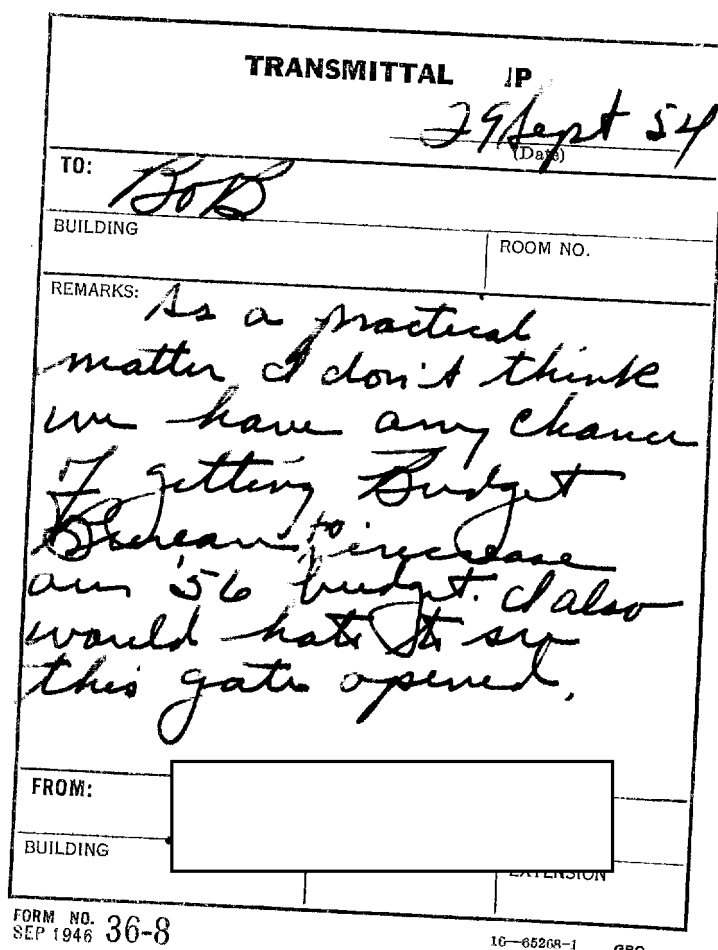 TRANSMITTAL IP
29 Sept 54
(Date)
TO: Bob
BUILDING
ROOM NO.
REMARKS: As a practical
matter I don't think
we have any chance
of getting Budget
Bureau to increase
our '56 budget. I also
would hate to see
this gate opened.
FROM:
BUILDING
EXTENSION
FORM NO. 36-8
SEP 1946
16—65268-1 GPO